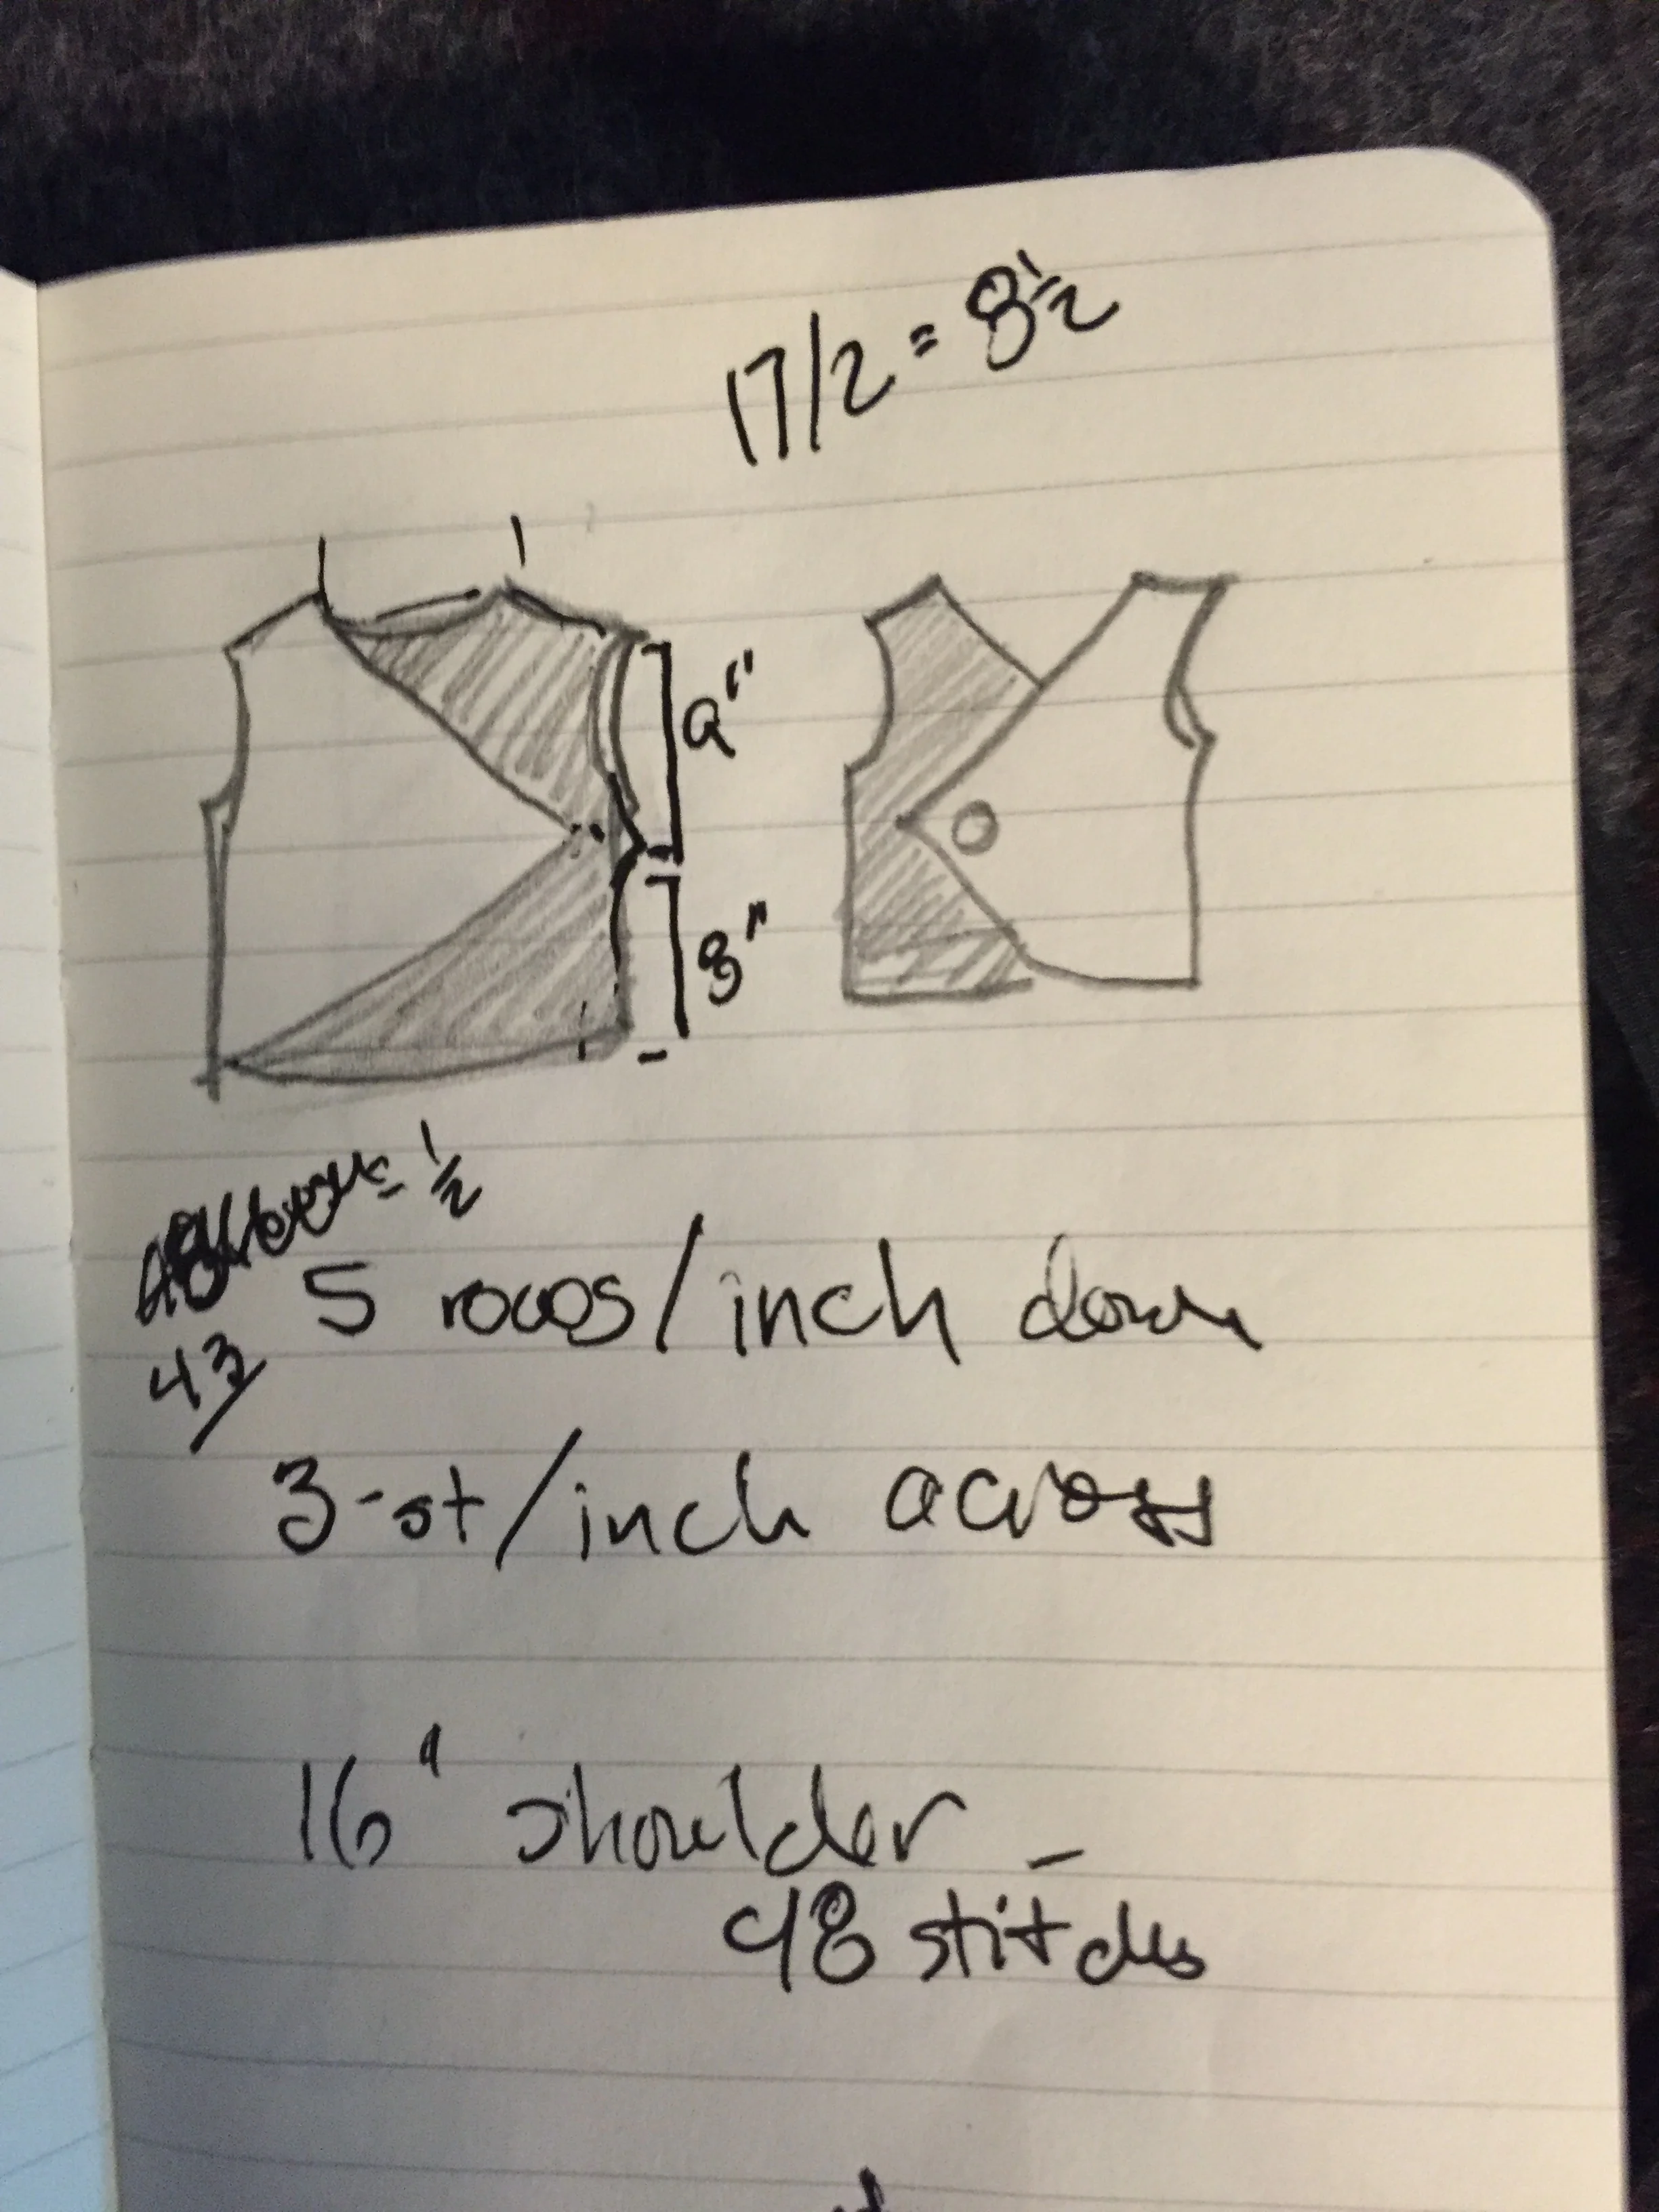 17/2 = 8½
9"
8"
= ½
5 rows/inch down
43
3-st/inch across
16" shoulder -
48 stitches